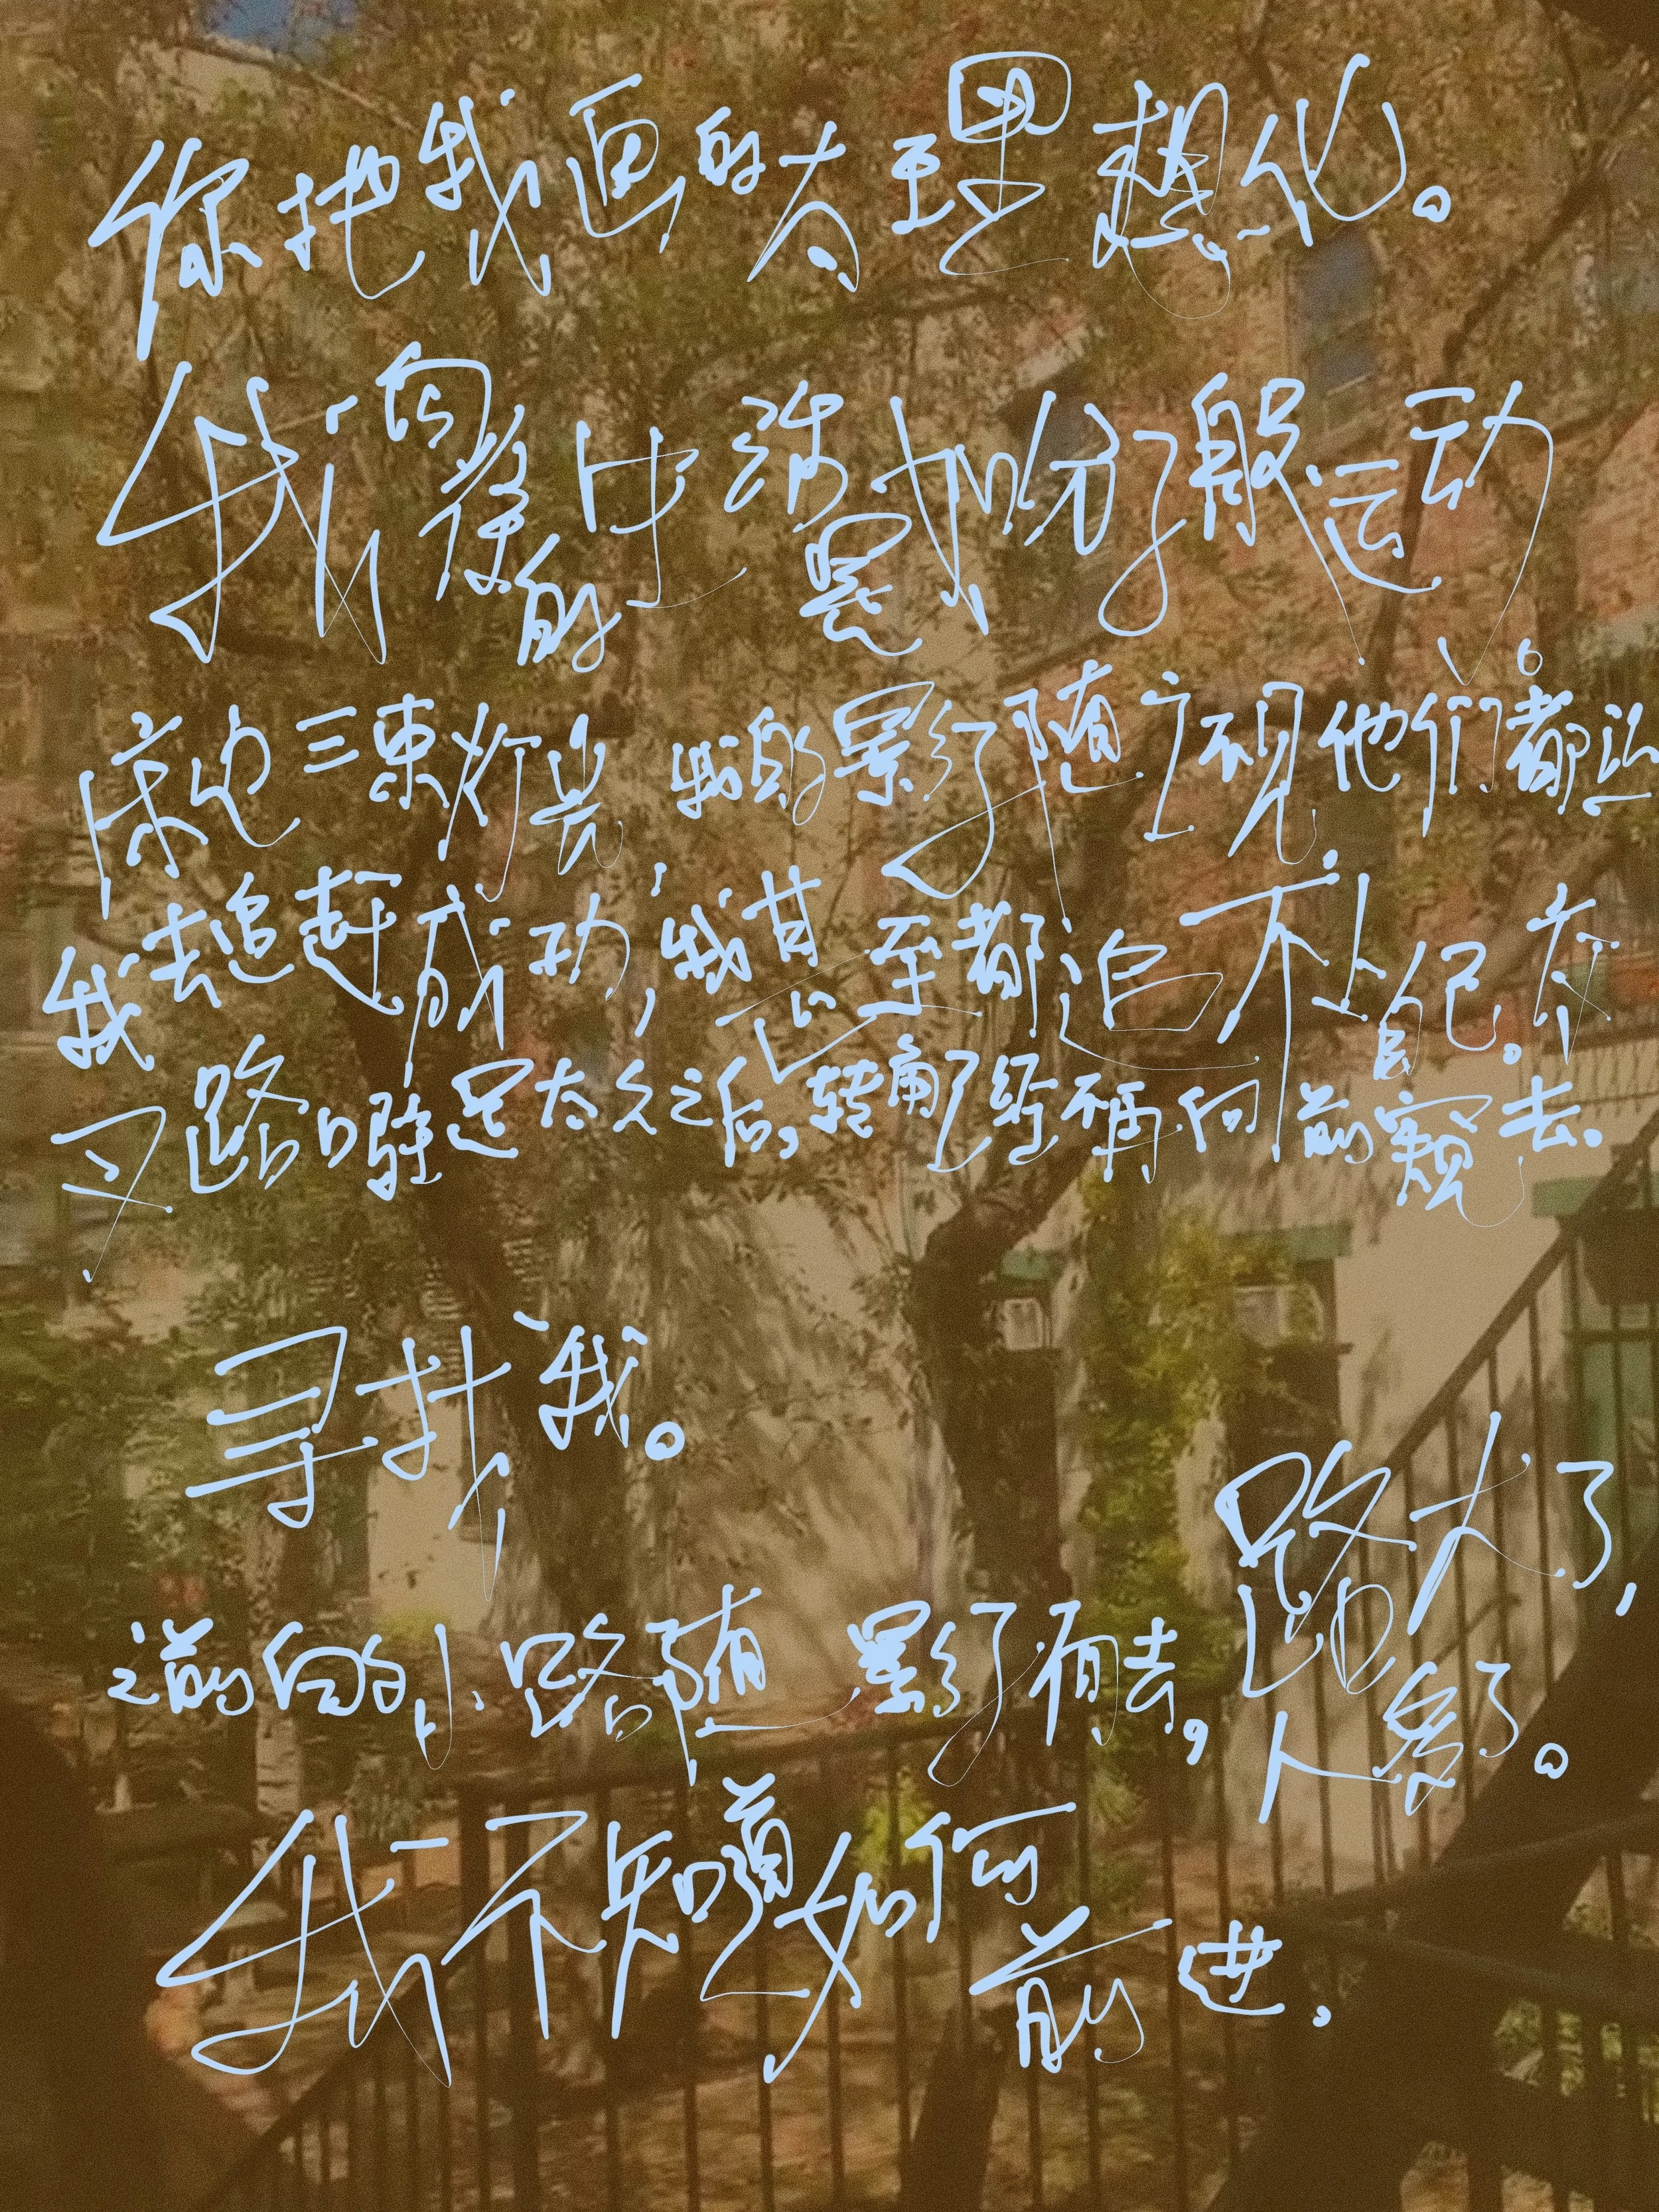 你把我画的太理想化。
我们前后的步 是如分子般运动。
三束灯光,我的影子随之出现,他们都让
我去追赶成功,我甚至都追不上自己。在
叉路口驻足太久之后,转角了 不再向前 去。
寻找我。
路大了,
之前的小路随影子而去,路 人 了。
我不知道如何
前进.